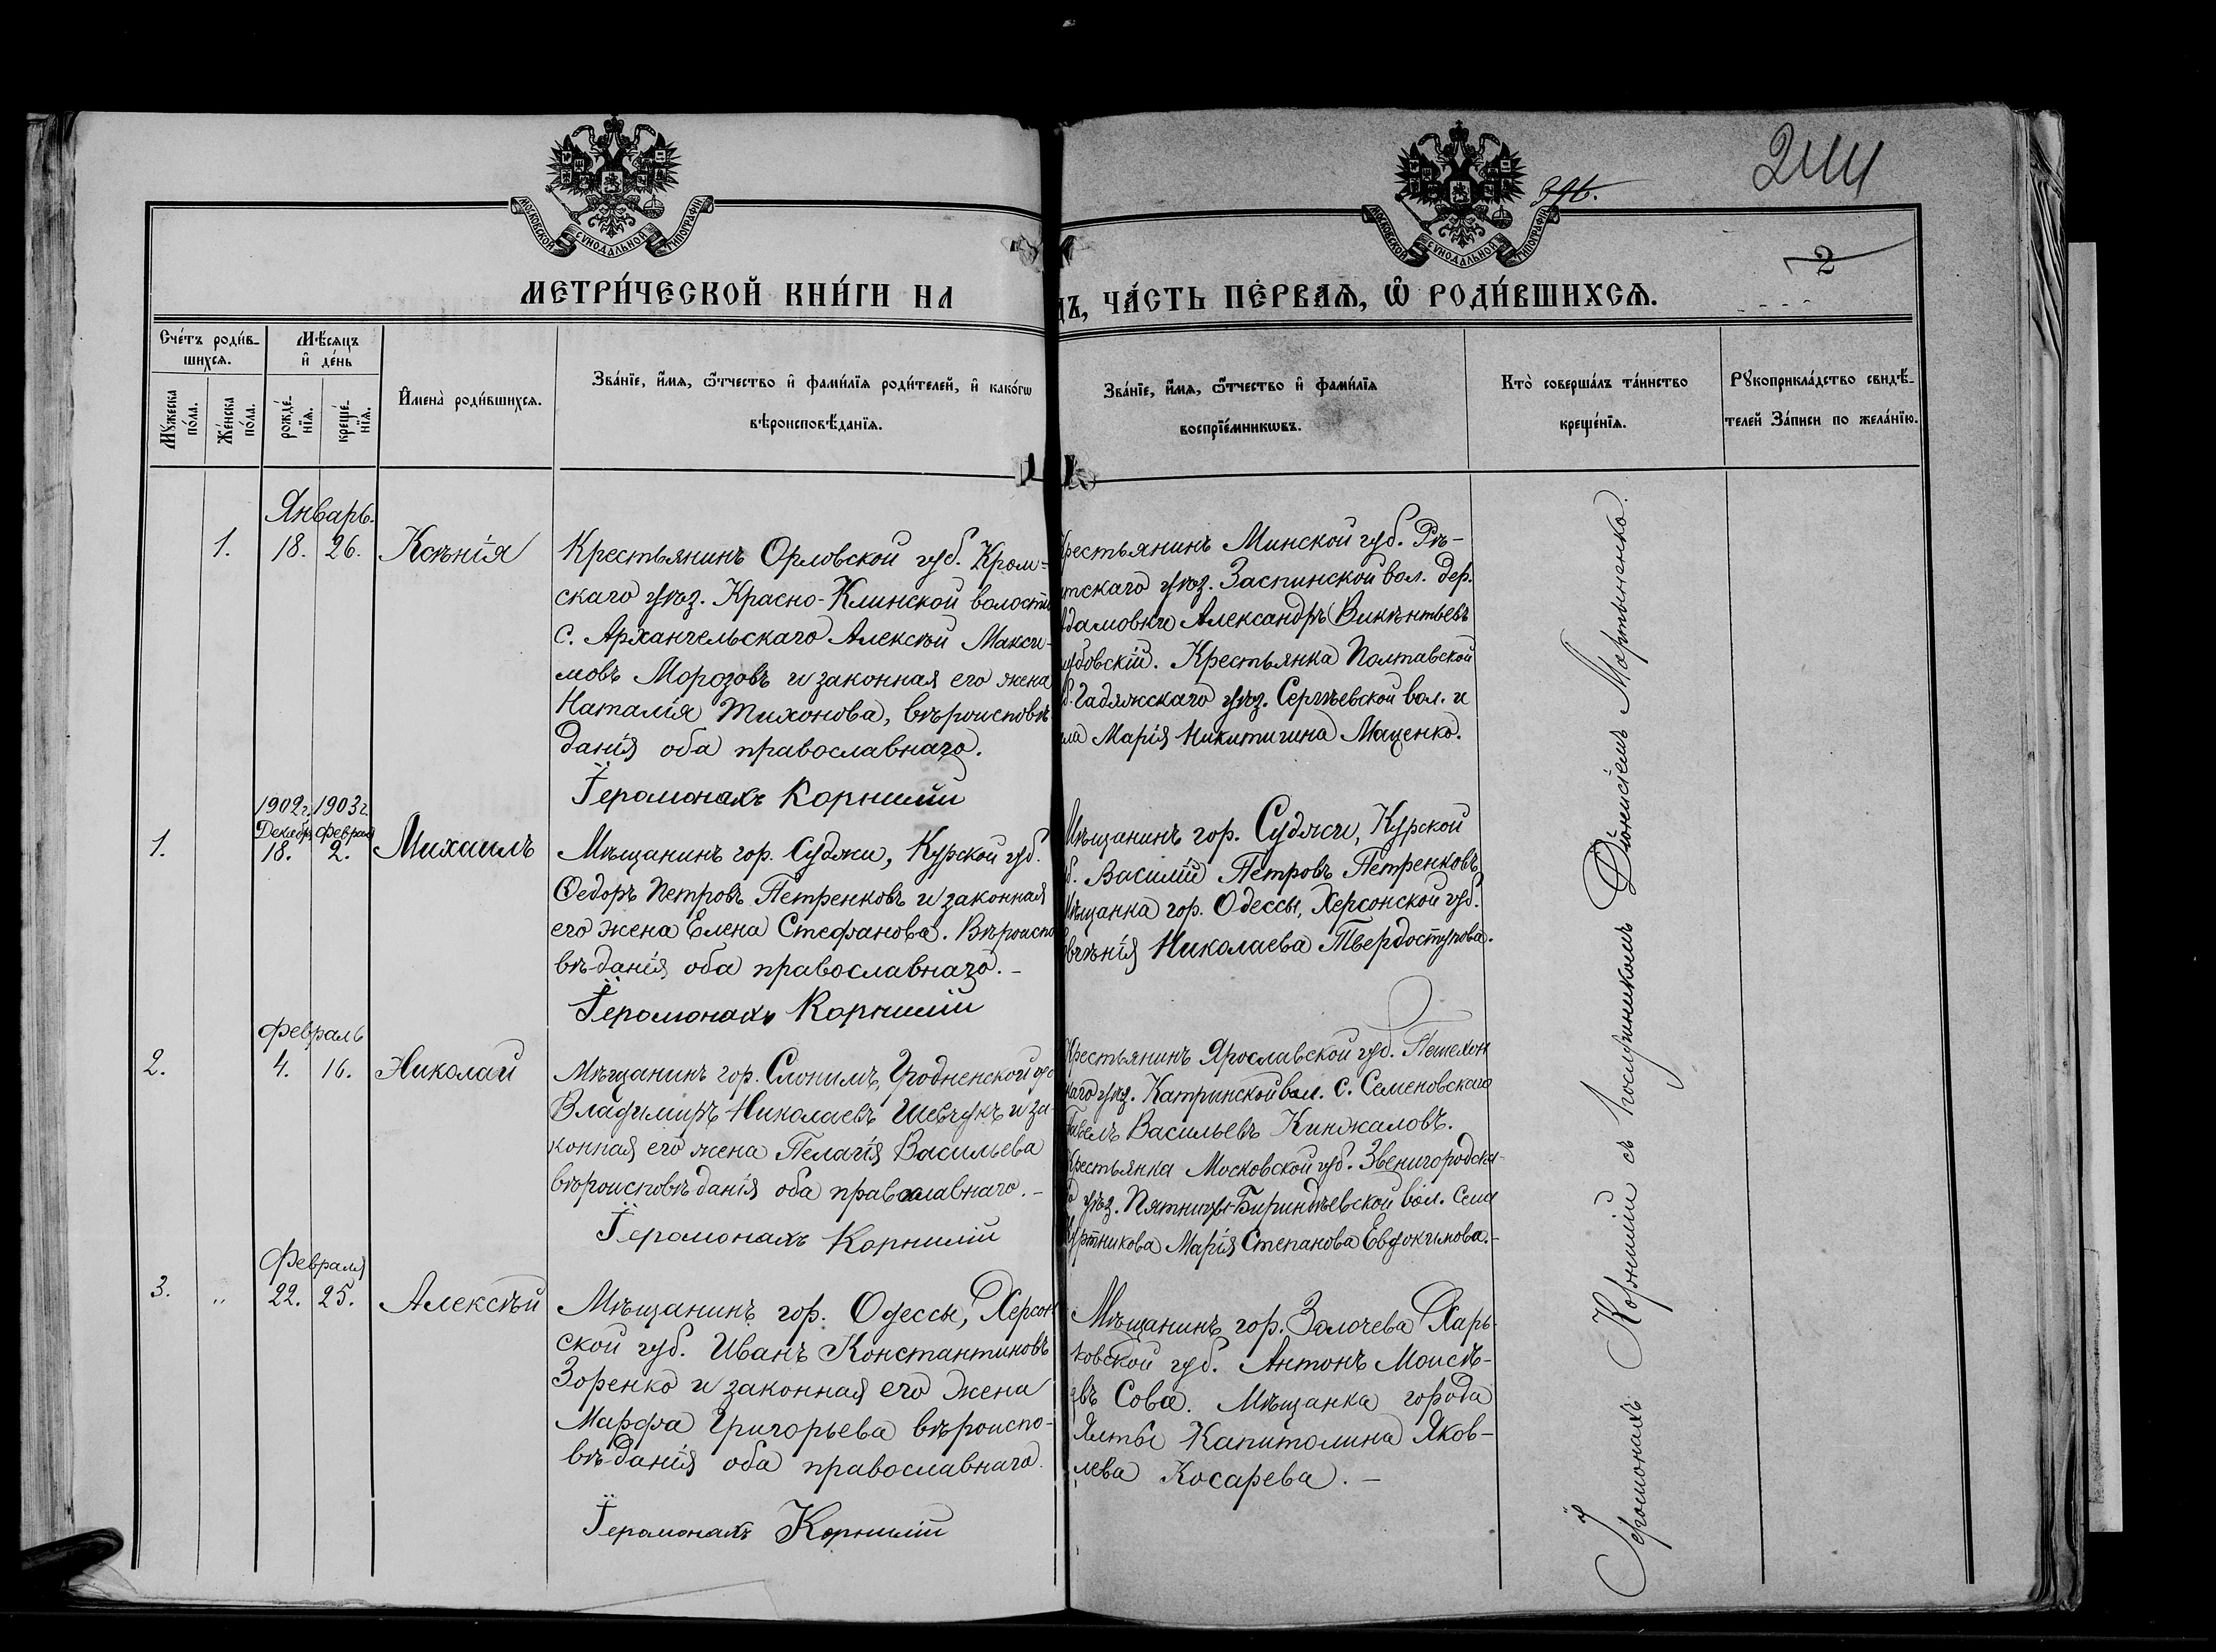 МОСКОВСКОЙ СѴНОДАЛЬНОЙ ТИПОГРАФІИ
МОСКОВСКОЙ СѴНОДАЛЬНОЙ ТИПОГРАФІИ
396.
244
2
МЕТРИ́ЧЕСКОЙ КНИ́ГИ НА
ДЪ, ЧА́СТЬ ПЕ́РВАѦ, Ѽ РОДИ́ВШИХСѦ.
Сче́тъ роди́в-
шихсѧ.
Мѣ́сѧцъ
и҆ де́нь
Мꙋ́жеска
по́ла.
Же́нска
по́ла.
рожде́-
нїѧ.
креще́-
нїѧ.
И҆мена̀ роди́вшихсѧ.
Зва́нїе, и҆́мѧ, ѻ҆́тчество и҆ фами́лїѧ роди́телей, и҆ како́гѡ
вѣроисповѣ́данїѧ.
Зва́нїе, и҆́мѧ, ѻ҆́тчество и҆ фами́лїѧ
воспрїе́мникѡвъ.
Кто̀ соверша́лъ та́инство
креще́нїѧ.
Рꙋкоприкла́дство свидѣ́-
телей За́писи по жела́нїю.
Январь.
1. 18. 26. Ксенія
Крестьянинъ Орловской губ. Кром-
скаго уѣз. Красно-Клинской волости
с. Архангельскаго Алексѣй Макси-
мовъ Морозовъ и законная его жена
Наталія Тихонова, вѣроисповѣ-
данія оба православнаго.
Іеромонахъ Корнилій
рестьянинъ Минской губ. Рѣ-
тскаго уѣз. Заспинской вол. дер.
дамовки Александръ Викентьевъ
убовскій. Крестьянка Полтавской
б. Гадяжскаго уѣз. Сергѣевской вол. и
ла Марія Никитична Маценко.
1902г. 1903г.
Декабрь Февраля
1. 18. 2. Михаилъ
Мѣщанинъ гор. Суджи, Курской губ.
Ѳедоръ Петровъ Петренковъ и законная
его жена Елена Стефанова. Вѣроиспо
вѣданія оба православнаго. -
Іеромонахъ Корнилій
Мѣщанинъ гор. Суджи, Курской
б. Василій Петровъ Петренковъ
ѣщанка гор. Одессы, Херсонской губ.
вгенія Николаева Твердоступова.
Февраль
2. 4. 16. Николай
Мѣщанинъ гор. Слонимъ, Гродненской губ
Владимиръ Николаевъ Шевчукъ и за-
конная его жена Пелагія Васильева
вѣроисповѣданія оба православнаго. -
Іеромонахъ Корнилій
Крестьянинъ Ярославской губ. Пошехон
каго уѣз. Катринской вол. с. Семеновскаго
Павелъ Васильевъ Кинжаловъ.
Крестьянка Московской губ. Звенигородска-
о уѣз. Пятницы-Бириндѣевской вол. села
уртникова Марія Степанова Евдокимова. -
Февраля
3. " 22. 25. Алексѣй
Мѣщанинъ гор. Одессы, Херсон-
ской губ. Иванъ Константиновъ
Зоренко и законная его жена
Марфа Григорьева вѣроиспо-
вѣданія оба православнаго.
Іеромонахъ Корнилій
Мѣщанинъ гор. Золочева Харь-
ковской губ. Антонъ Моисѣ-
евъ Сова. Мѣщанка города
Ялты Капитолина Яков-
лева Косарева. -
Іеромонахъ Корнилій съ послушникомъ Діонисіемъ Мартыненко.